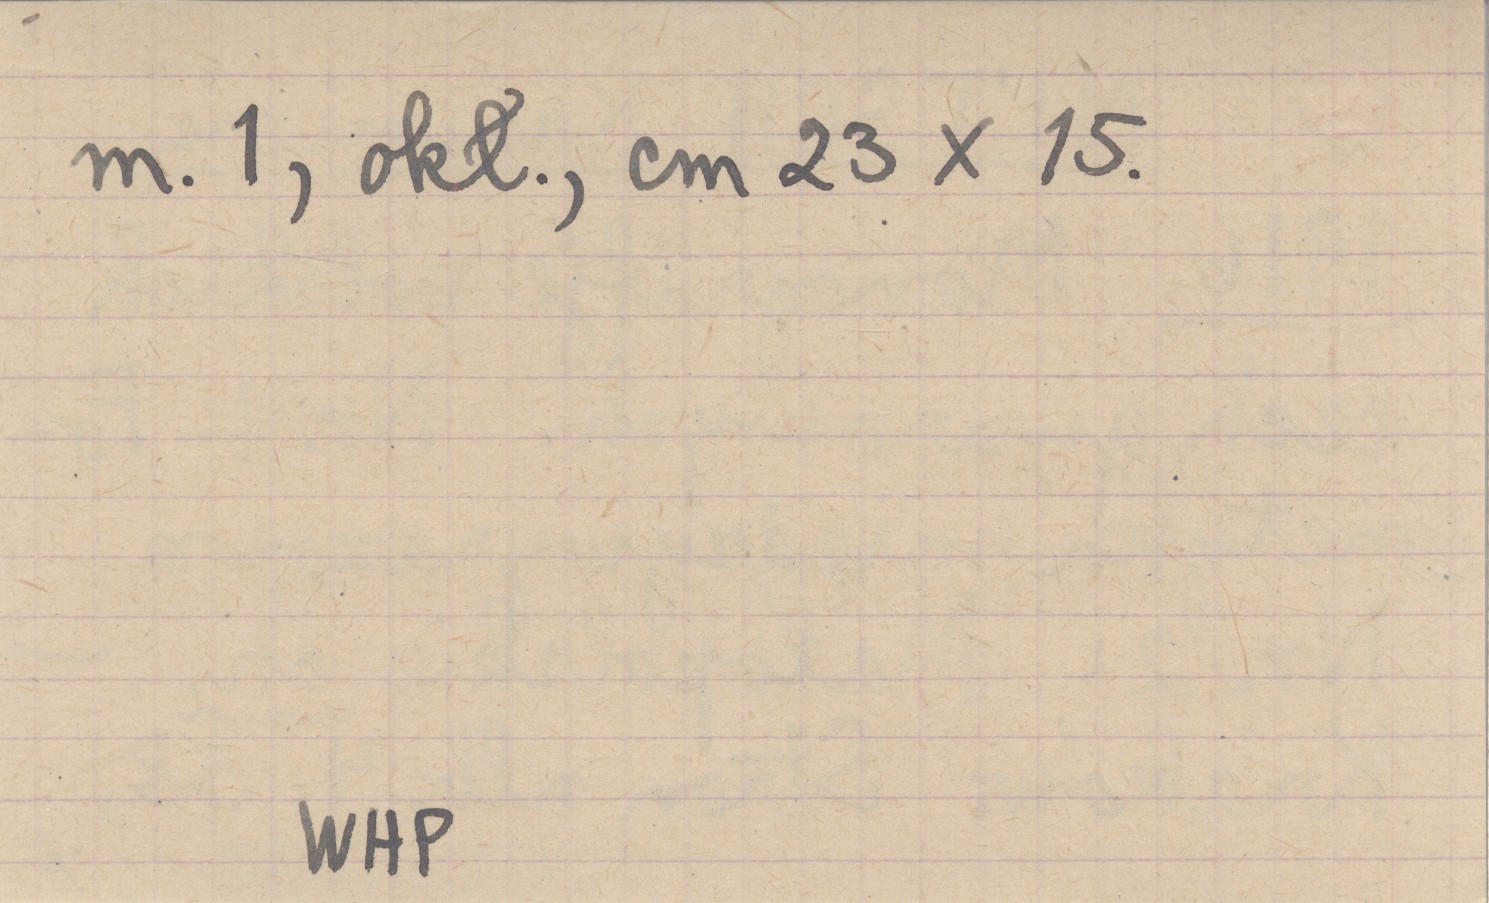 m. 1, okł., cm 23 x 15.
WHP